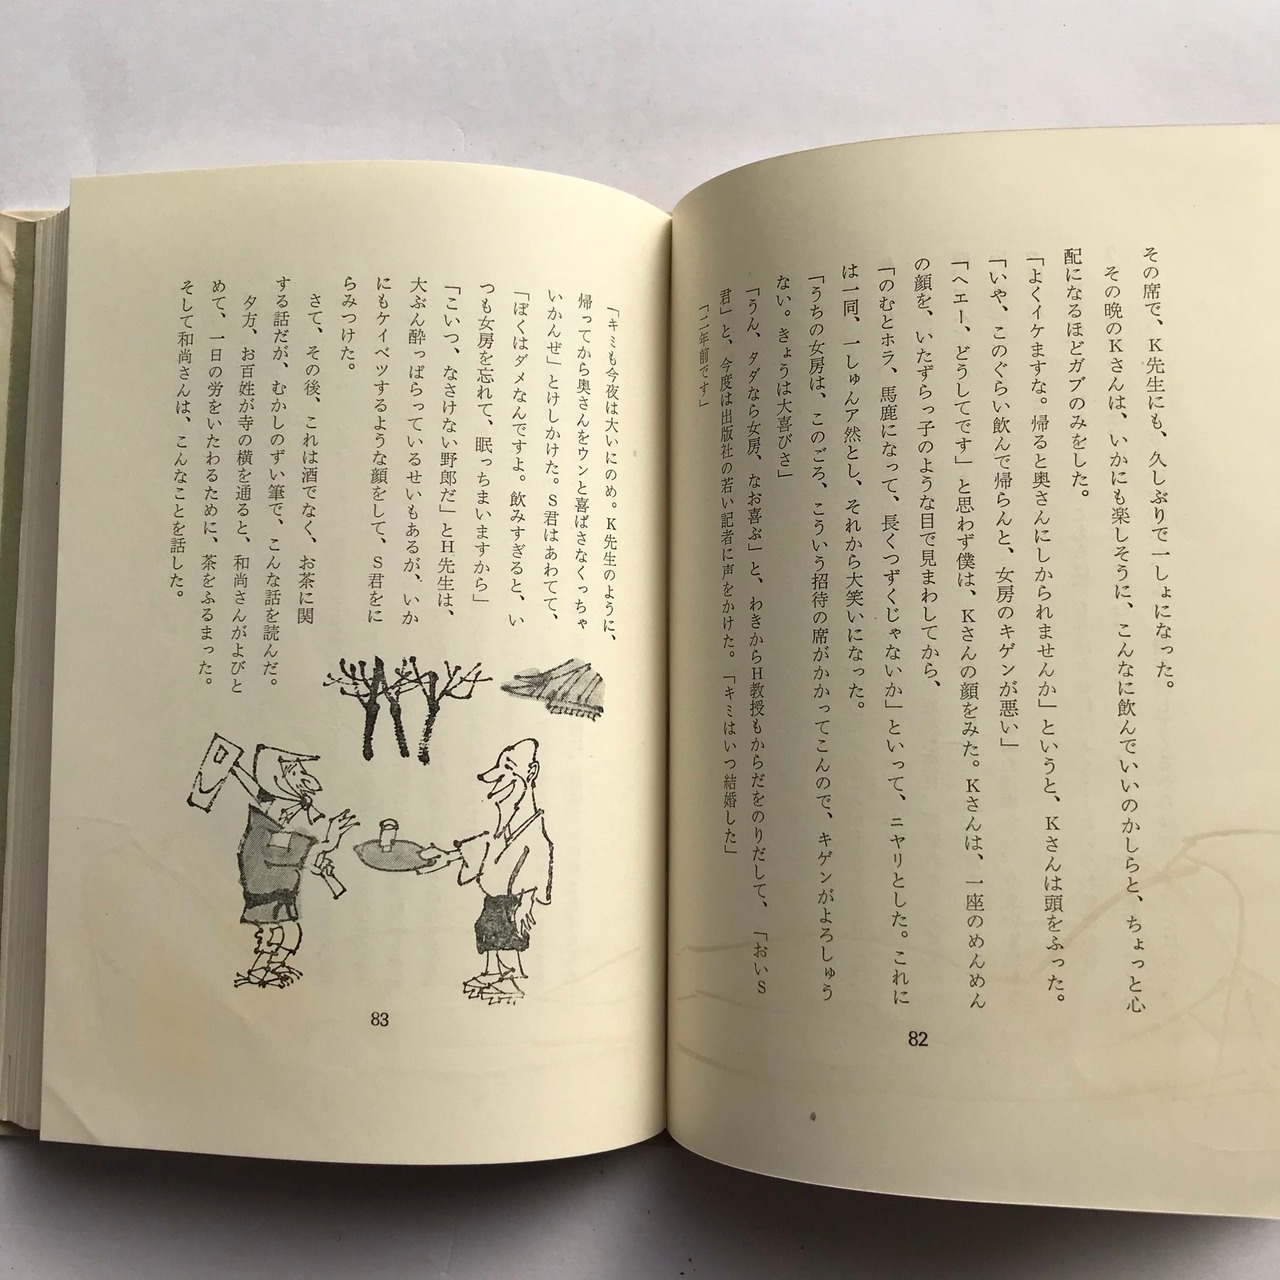 その席で、K先生にも、久しぶりで一しょになった。
その晩のKさんは、いかにも楽しそうに、こんなに飲んでいいのかしらと、ちょっと心
配になるほどガブのみをした。
「よくイケますな。帰ると奥さんにしかられませんか」というと、Kさんは頭をふった。
「いや、このぐらい飲んで帰らんと、女房のキゲンが悪い」
「ヘエー、どうしてです」と思わず僕は、Kさんの顔をみた。Kさんは、一座のめんめん
の顔を、いたずらっ子のような目で見まわしてから、
「のむとホラ、馬鹿になって、長くつずくじゃないか」といって、ニヤリとした。これに
は一同、一しゅんア然とし、それから大笑いになった。
「うちの女房は、このごろ、こういう招待の席がかかってこんので、キゲンがよろしゅう
ない。きょうは大喜びさ」
「うん、タダなら女房、なお喜ぶ」と、わきからH教授もからだをのりだして、「おいS
君」と、今度は出版社の若い記者に声をかけた。「キミはいつ結婚した」
「二年前です」
82
「キミも今夜は大いにのめ。K先生のように、
帰ってから奥さんをウンと喜ばさなくっちゃ
いかんぜ」とけしかけた。S君はあわてて、
「ぼくはダメなんですよ。飲みすぎると、い
つも女房を忘れて、眠っちまいますから」
「こいつ、なさけない野郎だ」とH先生は、
大ぶん酔っぱらっているせいもあるが、いか
にもケイベツするような顔をして、S君をに
らみつけた。
さて、その後、これは酒でなく、お茶に関
する話だが、むかしのずい筆で、こんな話を読んだ。
夕方、お百姓が寺の横を通ると、和尚さんがよびと
めて、一日の労をいたわるために、茶をふるまった。
そして和尚さんは、こんなことを話した。
83